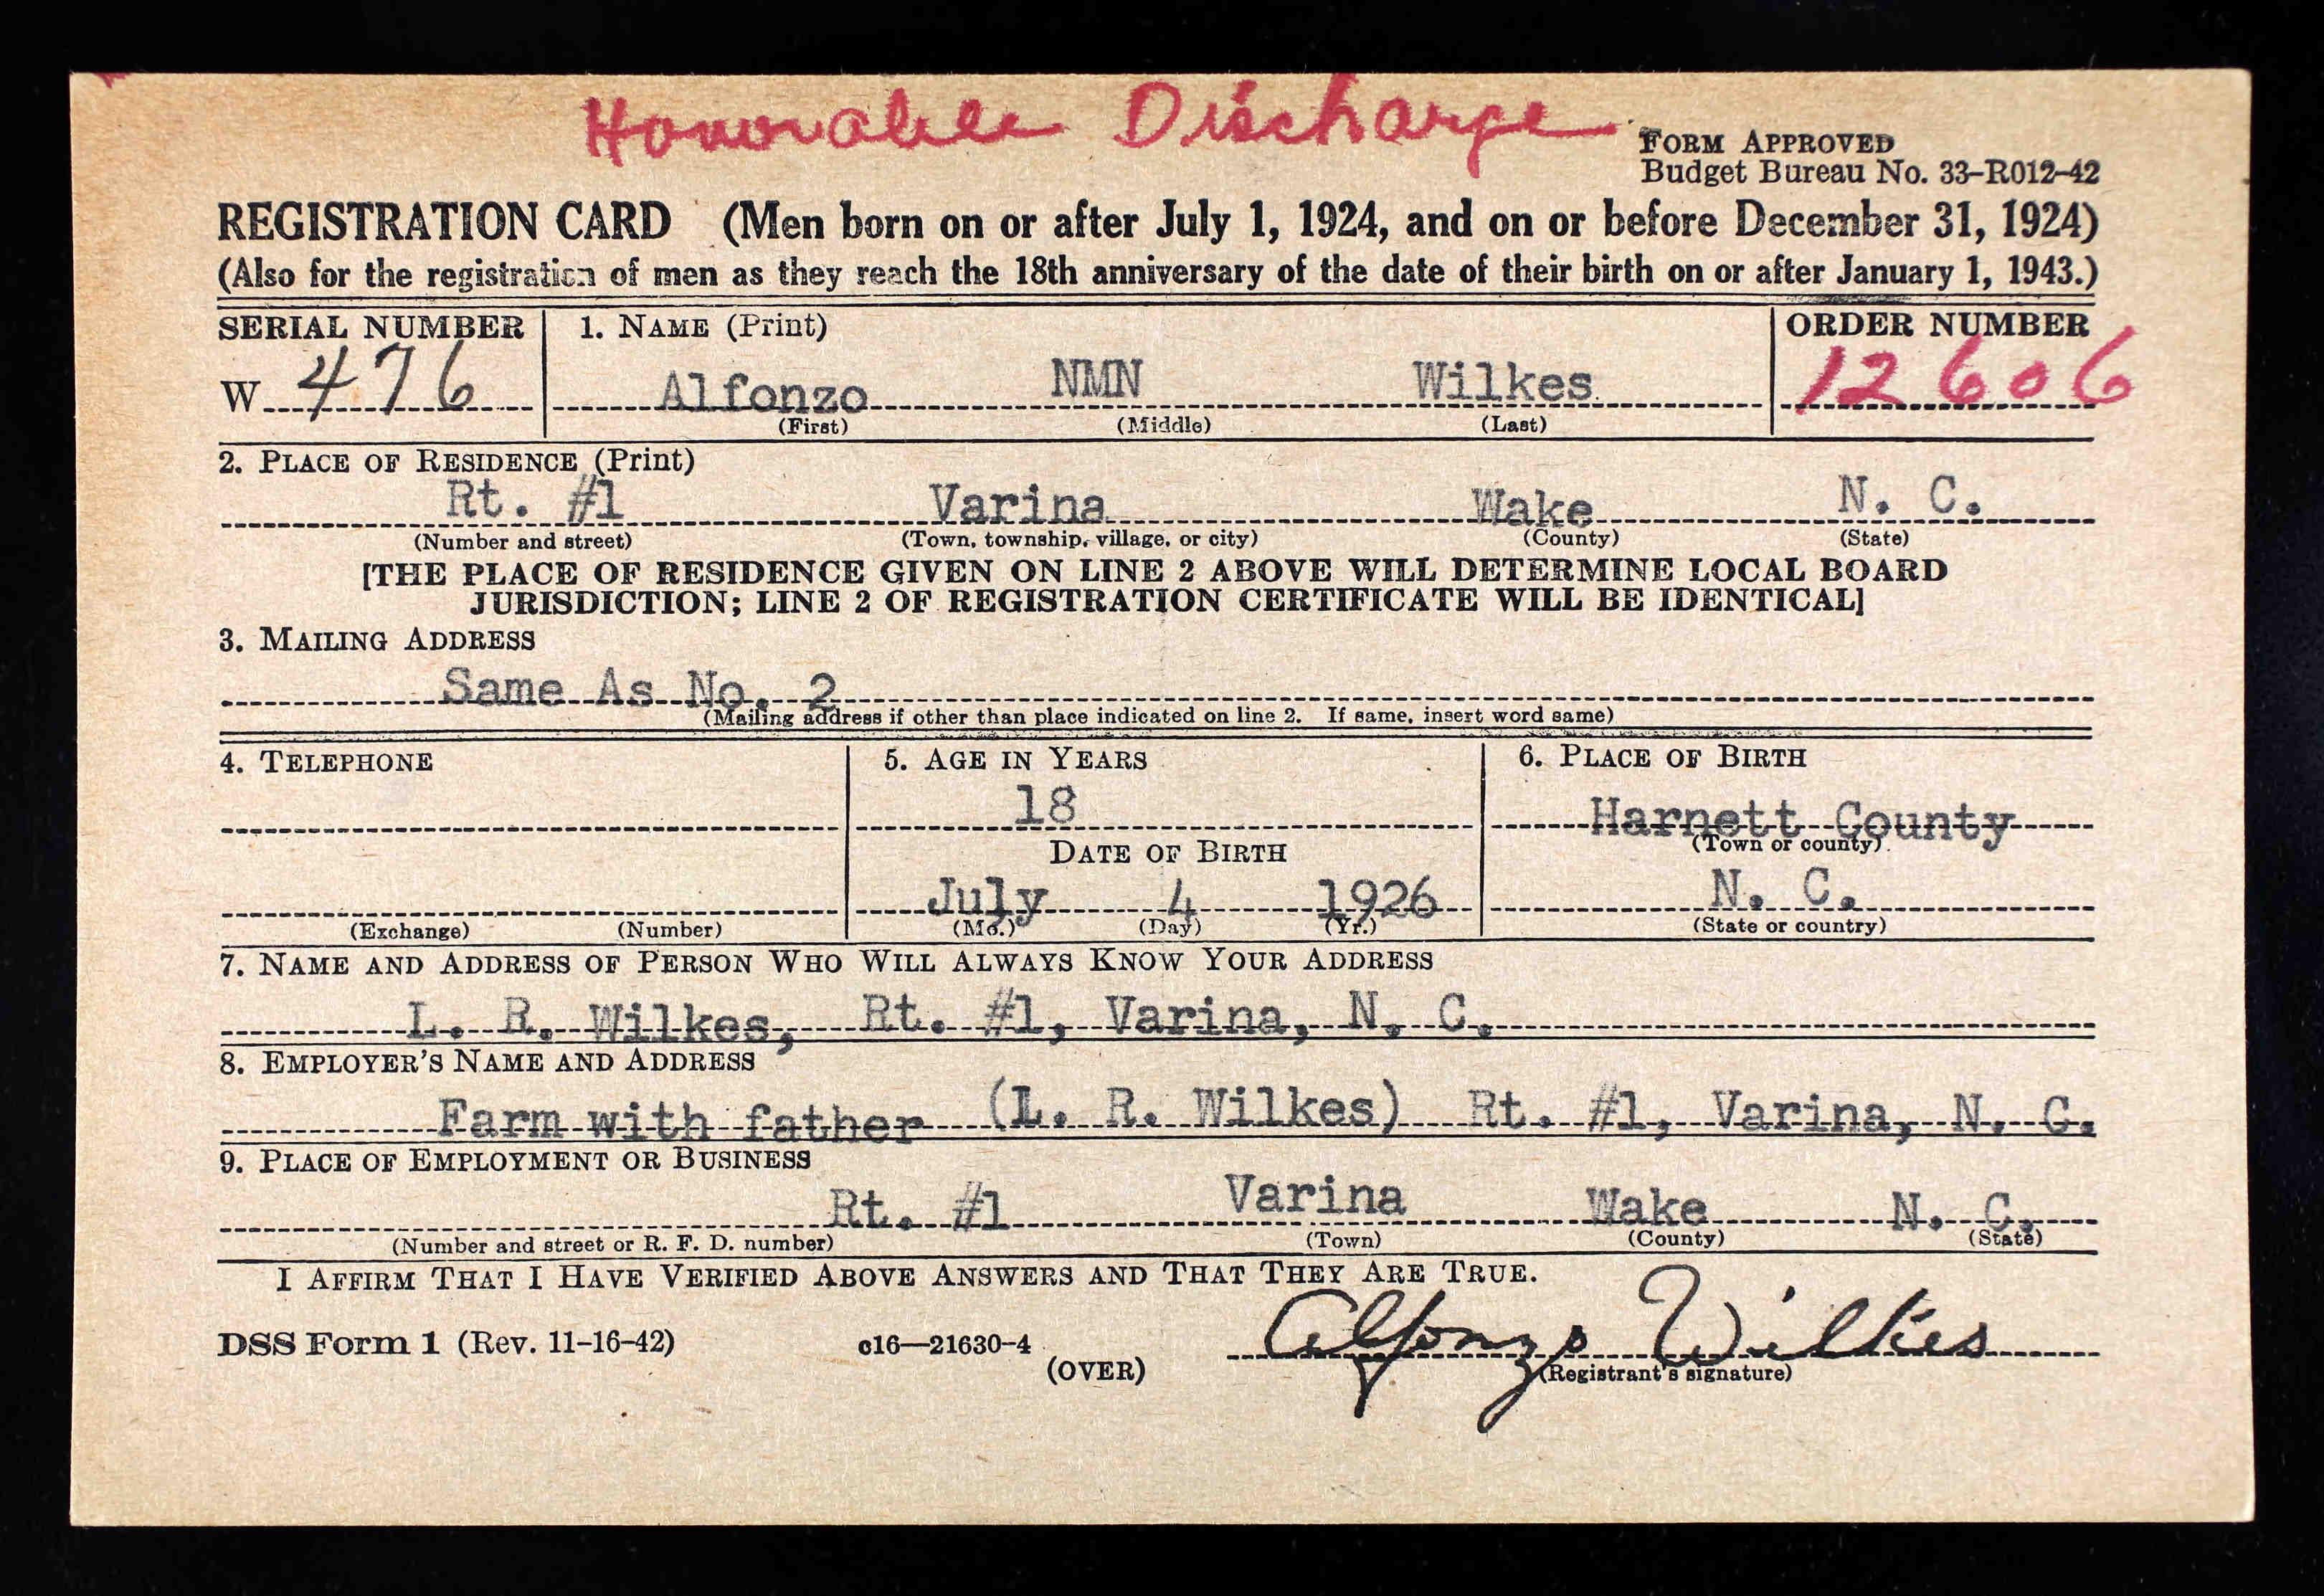 Honorable Discharge
FORM APPROVED
Budget Bureau No. 33-R012-42
REGISTRATION CARD (Men born on or after July 1, 1924, and on or before December 31, 1924)
(Also for the registration of men as they reach the 18th anniversary of the date of their birth on or after January 1, 1943.)
SERIAL NUMBER 1. NAME (Print) ORDER NUMBER
W 476 Alfonzo NMN Wilkes 12606
(First) (Middle) (Last)
2. PLACE OF RESIDENCE (Print)
Rt. #1 Varina Wake N. C.
(Number and street) (Town, township, village, or city) (County) (State)
[THE PLACE OF RESIDENCE GIVEN ON LINE 2 ABOVE WILL DETERMINE LOCAL BOARD
JURISDICTION; LINE 2 OF REGISTRATION CERTIFICATE WILL BE IDENTICAL]
3. MAILING ADDRESS
Same As No. 2
(Mailing address if other than place indicated on line 2. If same, insert word same)
4. TELEPHONE 5. AGE IN YEARS 6. PLACE OF BIRTH
18 Harnett County
(Town or county)
DATE OF BIRTH
July 4 1926 N. C.
(Exchange) (Number) (Mo.) (Day) (Yr.) (State or country)
7. NAME AND ADDRESS OF PERSON WHO WILL ALWAYS KNOW YOUR ADDRESS
L. R. Wilkes, Rt. #1, Varina, N. C.
8. EMPLOYER'S NAME AND ADDRESS
Farm with father (L. R. Wilkes) Rt. #1, Varina, N. C.
9. PLACE OF EMPLOYMENT OR BUSINESS
Rt. #1 Varina Wake N. C.
(Number and street or R. F. D. number) (Town) (County) (State)
I AFFIRM THAT I HAVE VERIFIED ABOVE ANSWERS AND THAT THEY ARE TRUE.
DSS Form 1 (Rev. 11-16-42) c16—21630-4 Alfonzo Wilkes
(OVER) (Registrant's signature)